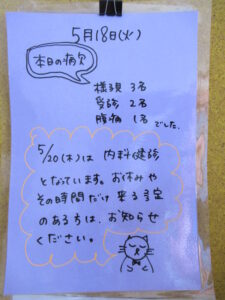 5月18日(火)
本日の病欠
様子見 3名
受診 2名
腹痛 1名 でした。
5/20(木)は 内科健診
となっています。お休みや
その時間だけ来る予定
のある方は、お知らせ
ください。